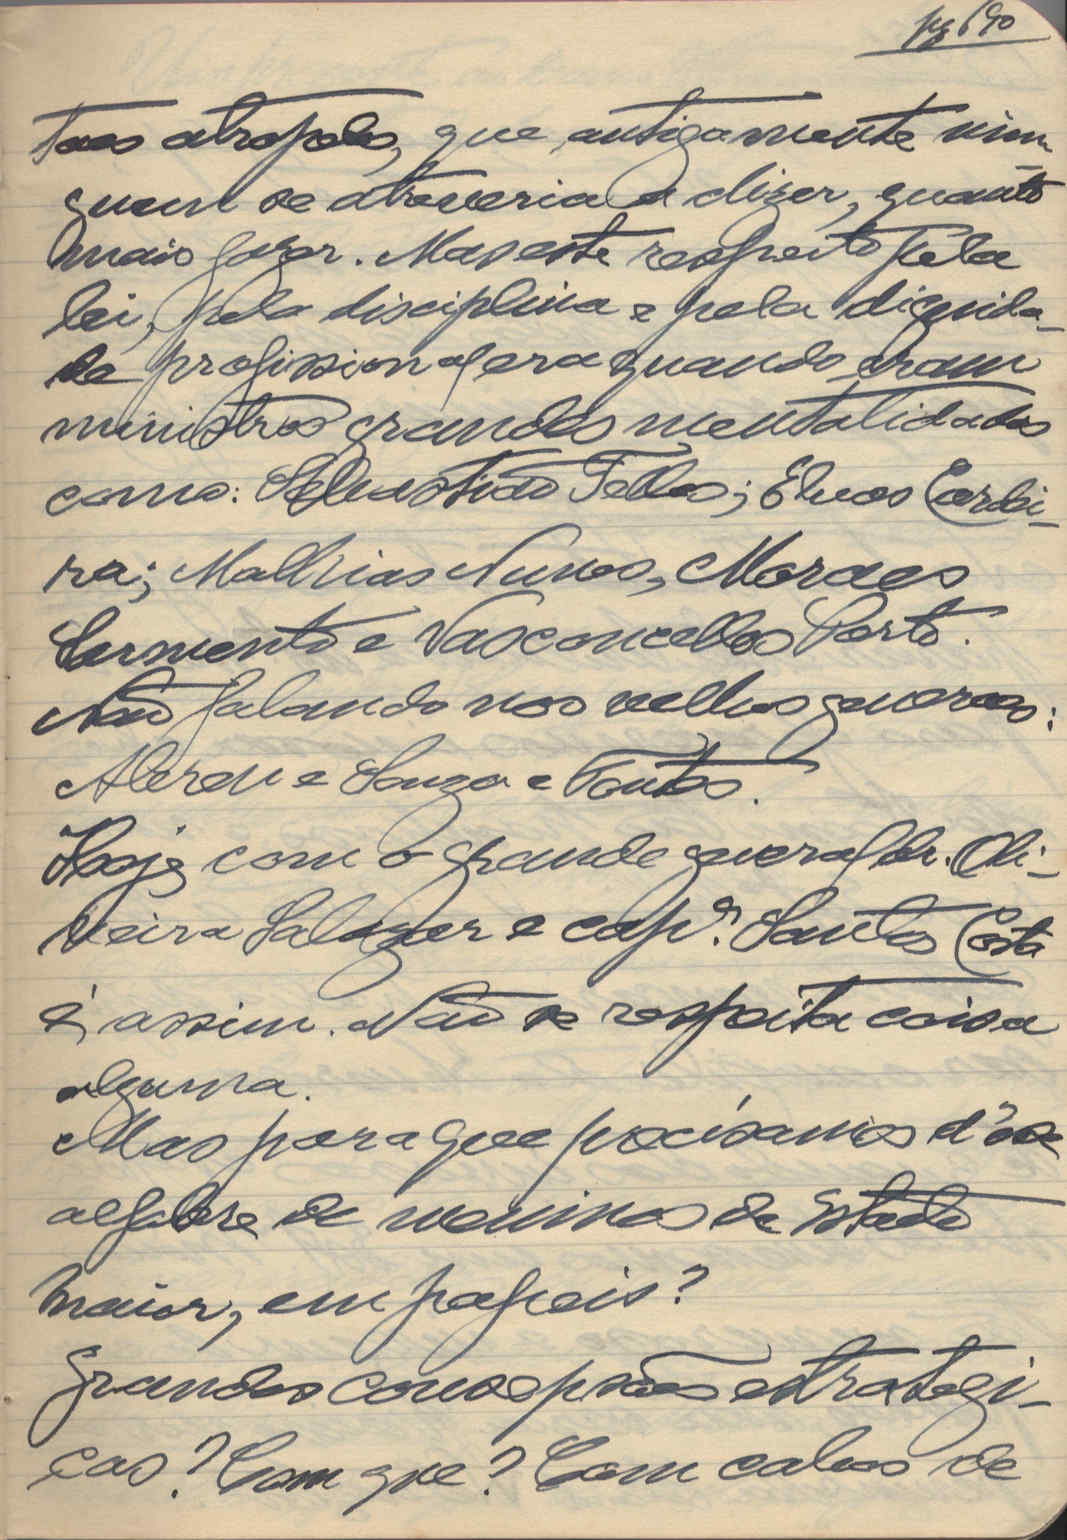 pg 690
taes atropelos, que antigamente nin-
guem se atreveria a dizer, quanto
mais fazer. Mas este respeito pela
lei, pela disciplina e pela dignida-
de profissional era quando eram
ministros grandes mentalidades
como: Sebastião Telles; Elvas Cardei-
ra; Mathias Nunes, Moraes
Sarmento e Vasconcellos Porto.
Não falando nos velhos generaes:
Abreu e Souza e Fontes.
Hoje com o grande general dr. Oli-
veira Salazar e capm. Santos Costa
é, assim. Não se respeita coisa
alguma.
Mas para que precisamos d'esse
alfobre de meninos de Estado
maior, em papeis?
Grandes concepções estrategi-
cas? Com que? Com cabos de